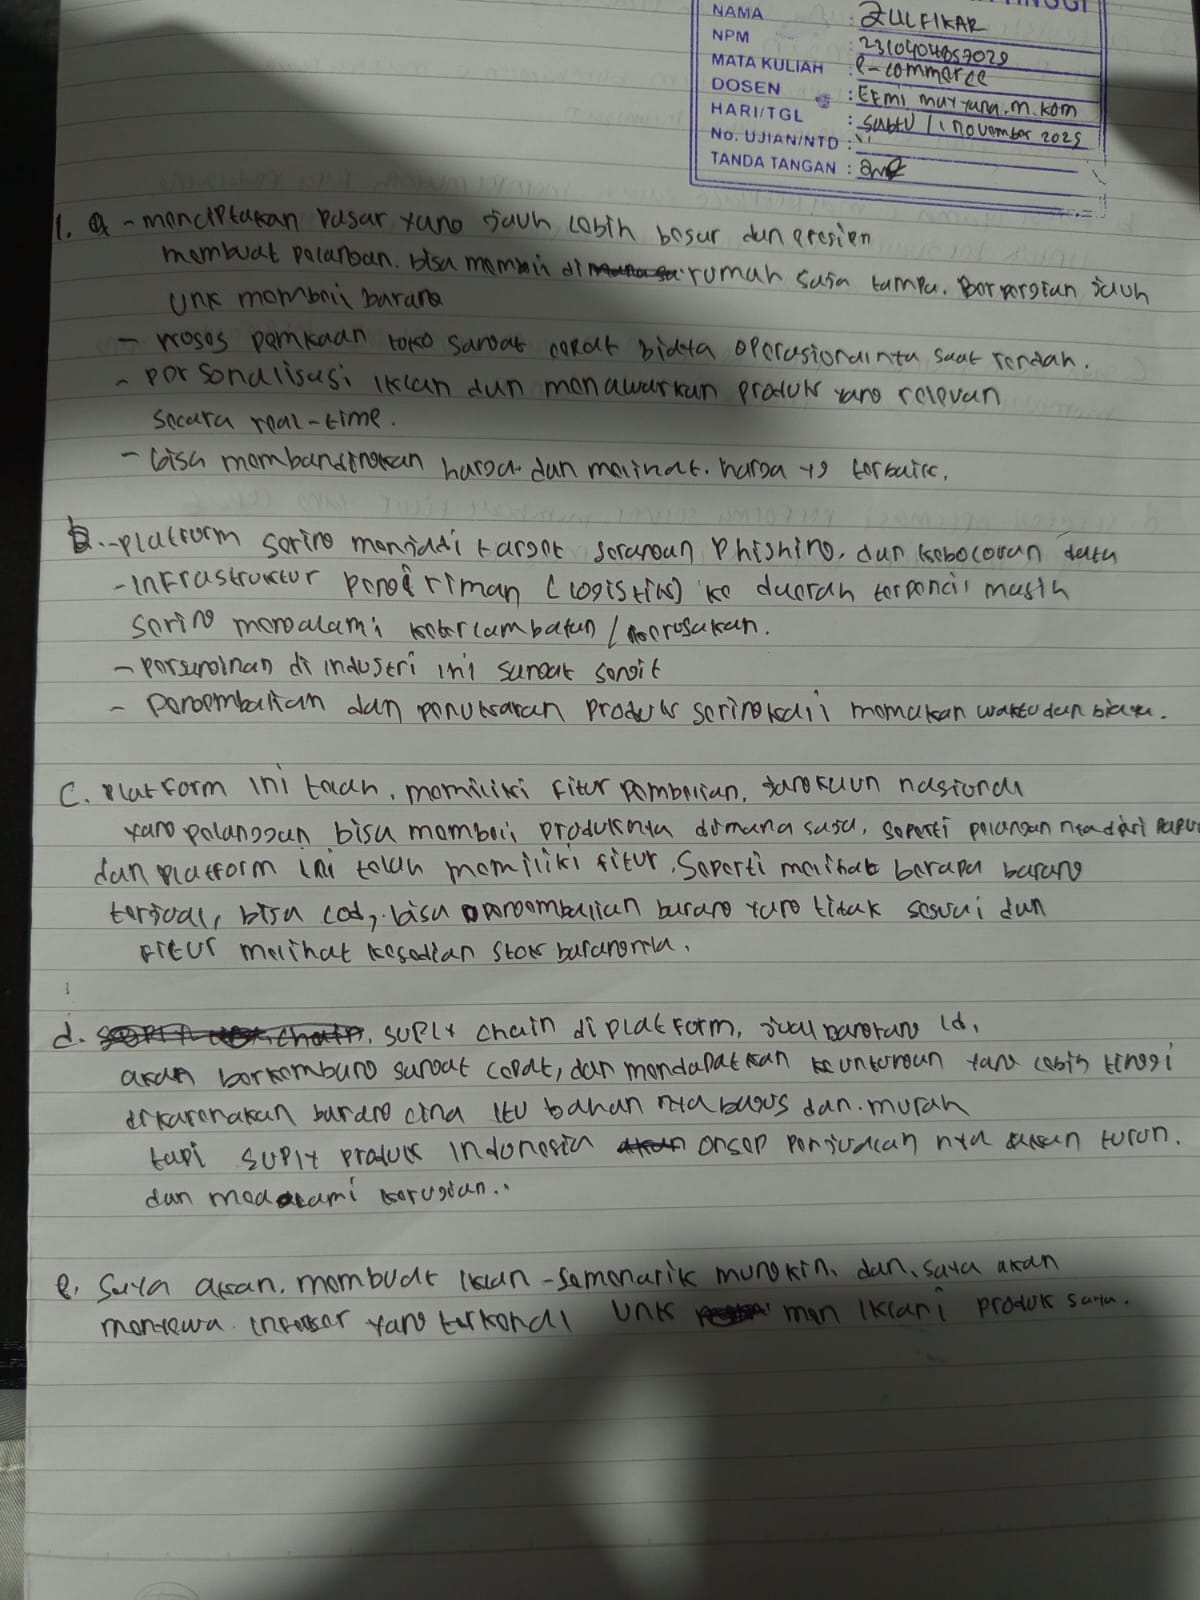 NAMA : ZULFIKAR
NPM : 2310404857029
MATA KULIAH : e-commerce
DOSEN : EFMI maryana.m.kom
HARI/TGL : SABtU / 1 november 2025
No. UJIAN/NTD :
TANDA TANGAN :
1. a - menciptakan pasar yang jauh lebih besar dan efesien
membuat pelanban. bisa membeli di rumah saja tampa. Berpergian jauh
Unk membeli barang
- proses pemkaan toko sangat cepat biaya operasionalnya saat rendah.
- personalisasi iklan dan menawarkan produk yang relevan
secara real-time.
- bisa membandingkan harga dan melihat. harga yg terbaik.
b. - platform sering menjadi target serangan phishing, dan kebocoran data
- infrastruktur pengiriman (logistik) ke daerah terpencil masih
sering mengalami keterlambatan / kerusakan.
- persaingan di industri ini sangat sengit
- pengembalian dan penukaran produk seringkali memakan waktu dan biaya.
C. platform ini telah, memiliki fitur pembelian, jangkaun nasional
yang pelanggan bisa membeli produknya dimana saja, seperti pelangan nya dari papua
dan platform ini telah memiliki fitur. Seperti melihat berapa barang
terjual, bisa cod, bisa pengembalian barang yang tidak sesuai dan
fitur melihat kesedian stok barangnya.
d. suply chain di platform, jual barang Id,
akan berkembang sangat cepat, dan mendapatkan keuntungan yang lebih tinggi
dikarenakan barang cina itu bahan nya bagus dan murah
tapi suply produk indonesia onsep penjualan nya akan turun.
dan mengalami kerugian..
e. Saya akan, membuat iklan - semenarik mungkin, dan, saya akan
menyewa. yang terkenal unk men iklani produk saya.